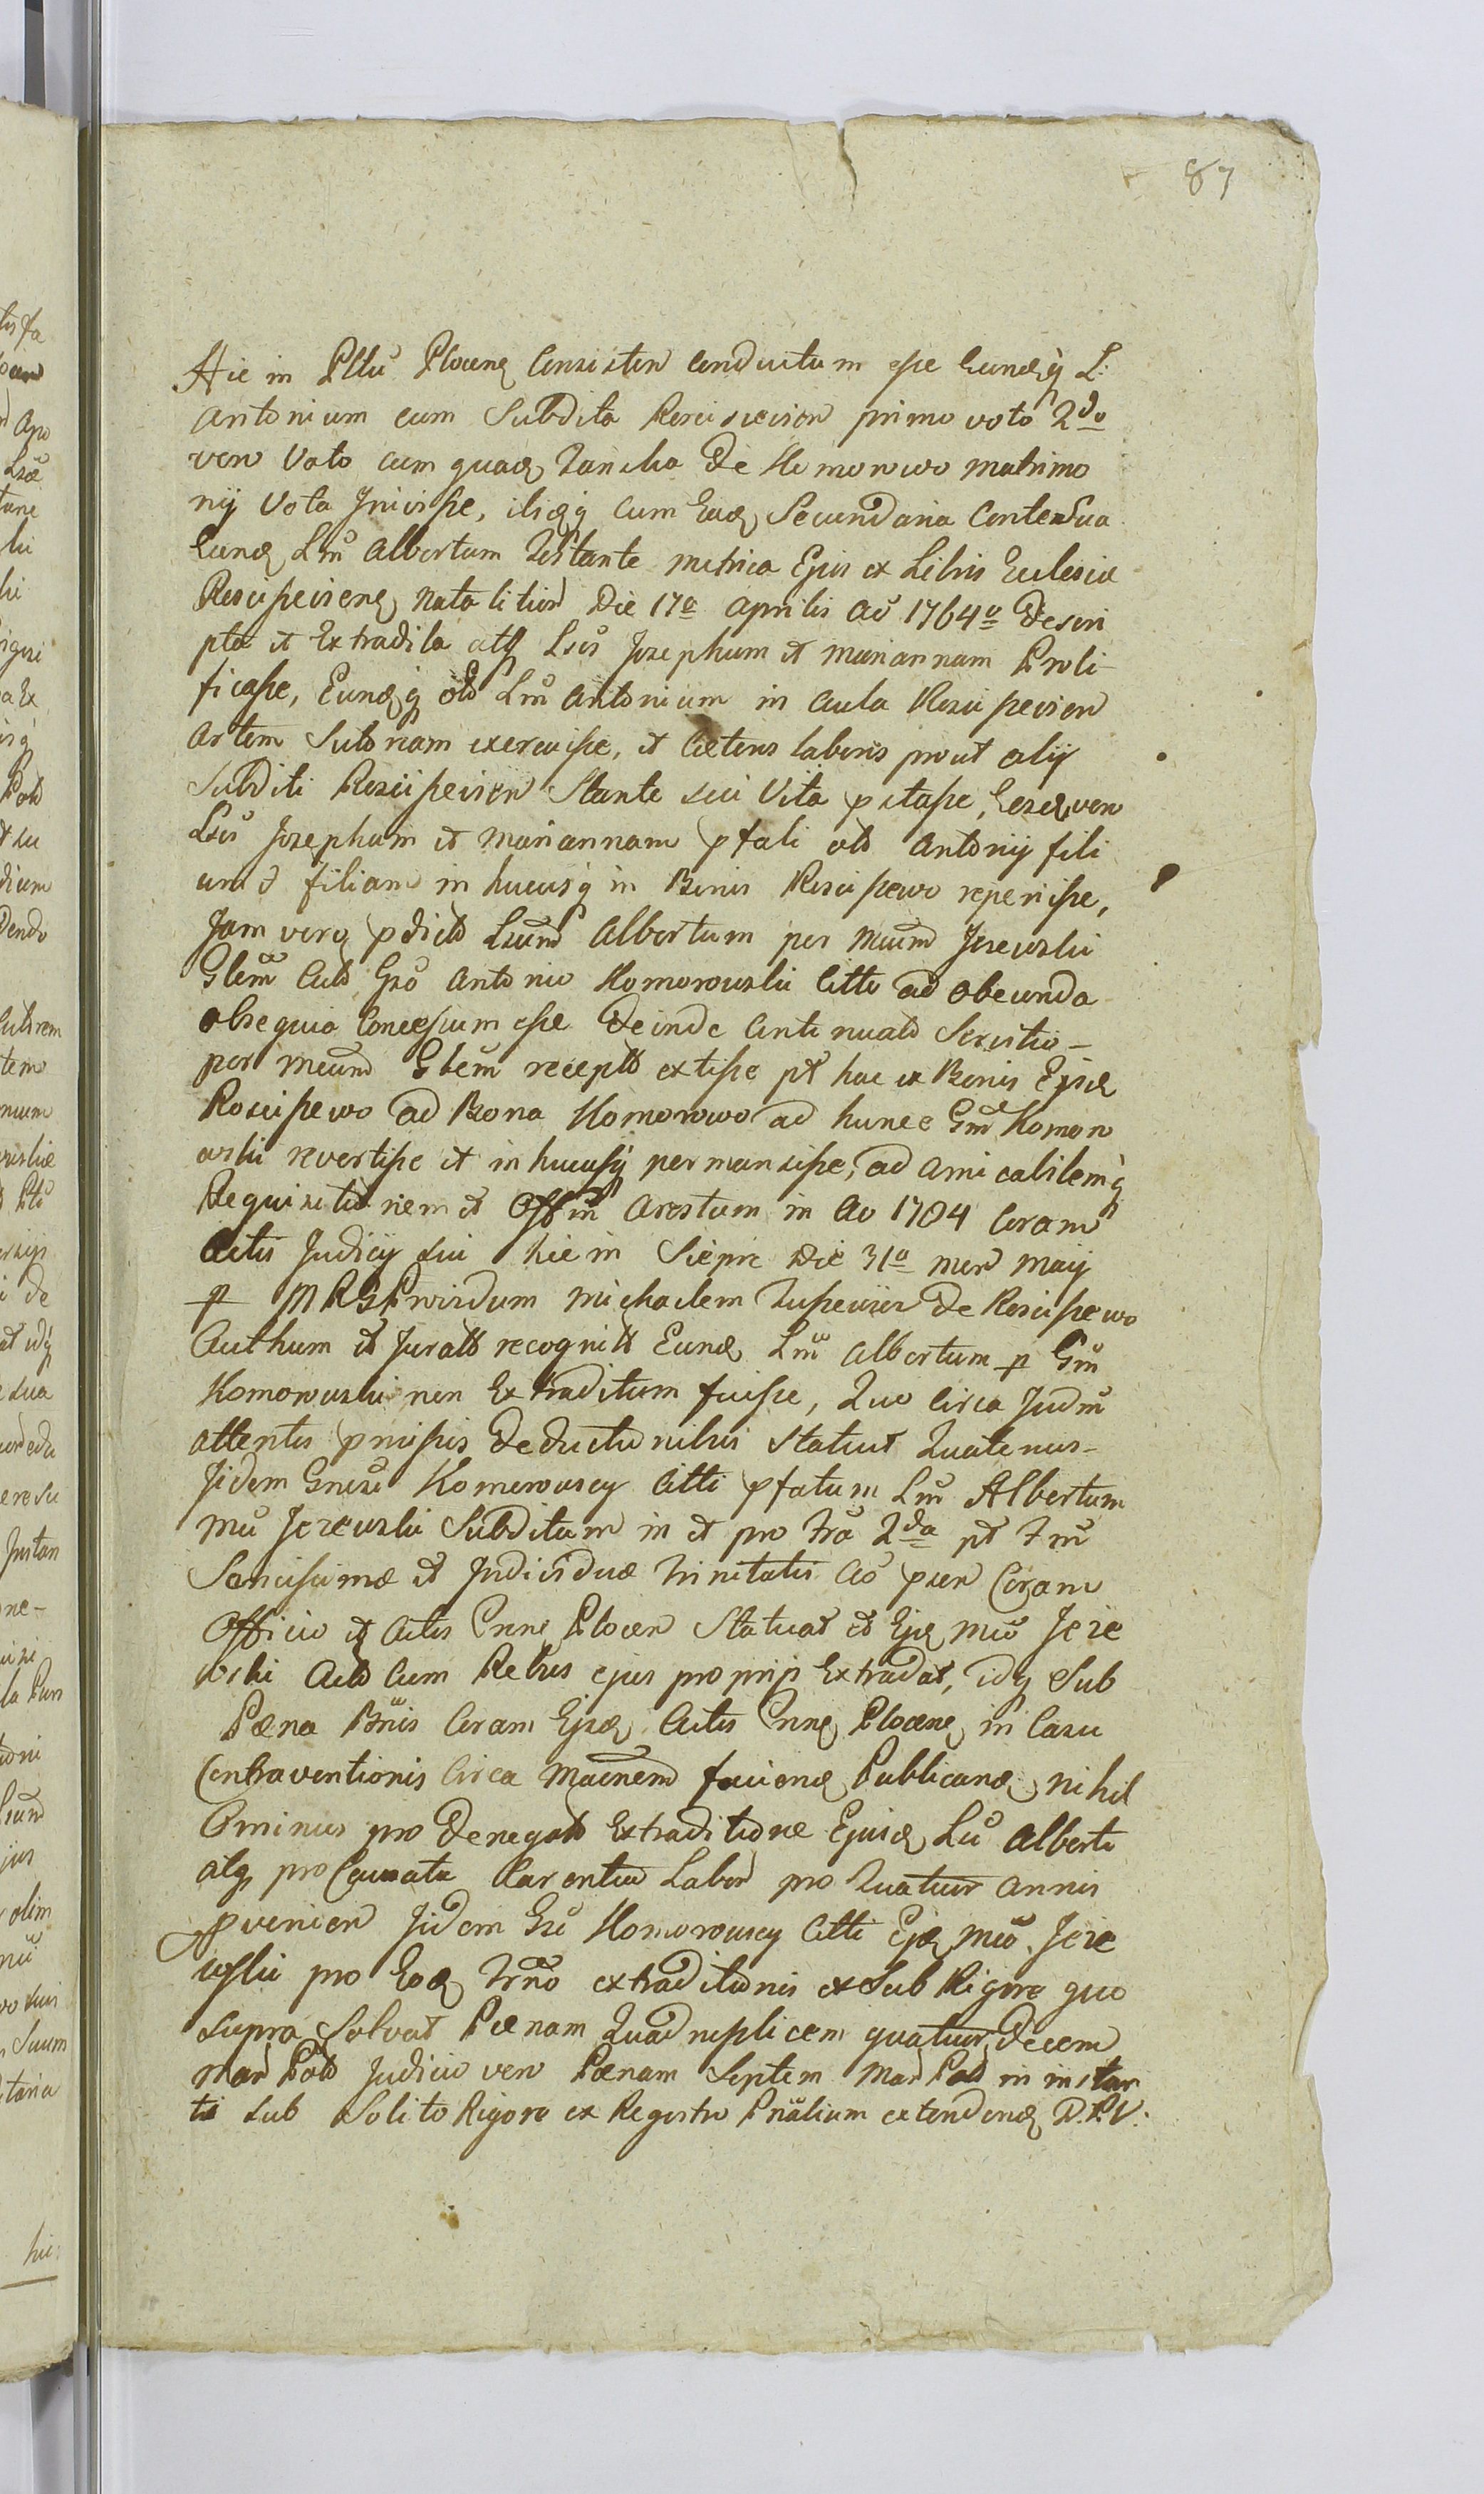 87
Hic in Pttu Plocens Consisten conductum esse Eundeq L:
Antonium cum Subdita Rosciszevien primo voto 2do
vero Voto cum quadq Zancha de Komorowo matrimo
nij Vota Iniisse, ibiqq cum Eadq Secundaria Contoralua
Eundq Lm Albertum Testante metrica Ejus ex Libris Eclesiæ
Rosciszeviens Natalitior Die 17a Aprilis Ao 1764o Descri
pta et Extradita atq Lsos Josephum et mariannam Proli-
ficasse, Eundqq olo Lm Antonium in Aula Rosciszevien
Artem Sutoriam exercuisse, et Cæteros labores prout alij
Subditi Rosciszevien Stante sui Vita pstasse, Eosdq vero
Lsos Josephum et mariannam pfati olo Antonij fili
um & filiam in hucusq in Bonis Rosciszewo reperisse,
Jam vero pdicto Lsum Albertum per Mcum Jezewski
Gbem Acto Gso Antonio Komorowski Citto ad obeunda
obsequia Concessum esse Deinde Continuato Servitio-
per Mcum Gbem recepto extisse pt hac ex Bonis Ejsdq
Rosciszewo ad Bona Komorowo ad hunce Gm Komoro
wski revertisse et in hucusq permansisse, ad amicabilemq
Requisitionem et Offm Arestum in Ao 1784 Coram
Actis Judicij sui hic in Sierpc Die 31a men Maij
p MRGProvidum Michaelem Zuszewicz de Rosciszewo
Authum et Jurato recognito Eundq Lm Albertum p Gm
Komorowski non Extraditum fuisse, Quo Circa Judm
attentis pmissis Deductionibus Statuit Quatenus-
Jidem Gnrsi Komorowscy Citti pfatum Lm Albertum
Mci Jezewski Subditum in et pro Fra 2da pt Fm
Sancissimæ et Individuæ Trinitatis Ao psen Coram
Officio et Actis Cnens Plocen Statuat et Ejdq Mco Jeze
wski Acto Cum Rebus ejus proprijs Extradat, idq Sub
Pæna Bnis Coram Ejsdq Actis Cnens Plocens in Casu
Contraventionis Circa Macnem faciendq Publicandq nihil
Ominus pro Denegato Extraditione Ejusdq Lsi Alberti
atq pro Causata Carentia Labor pro Quatuor annis
pvenien Jidem Gsi Komorowscy Citti Ejdq Mco Jeze
wski pro Eodq Trno extraditionis et Sub Rigore quo
Supra Solvat Pœnam Quadruplicem quatuordecem
Mar Polo Judicio vero Pœnam Septem Mar Polo in instan
ti sub Solito Rigore ex Regestro Pnalium extendendq D.P.V.